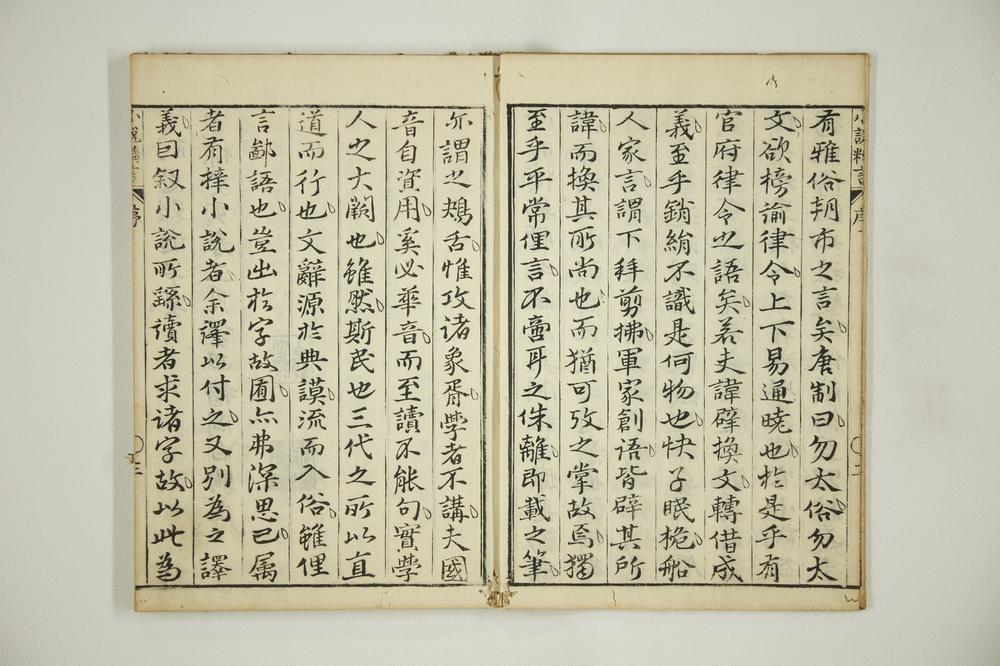 小説精言 序 二
有雅俗朝市之言矣唐制曰勿太俗勿太
文欲榜諭律令上下易通曉也於是乎有
官府律令之語矣若夫諱辟換文轉借成
義至乎銷絹不識是何物也快子眠桅船
人家言謂下拜剪拂軍家創語皆辟其所
諱而換其所尚也而猶可攷之掌故焉獨
至乎平常俚言不啻耳之侏離即載之筆
亦謂之鴂舌惟攻諸象胥學者不講夫國
音自資用奚必華音而至讀不能句實學
人之大闕也雖然斯民也三代之所以直
道而行也文辭源於典謨流而入俗雖俚
言鄙語也豈出於字故囿亦弗深思已属
者有擇小說者余譯以付之又別為之譯
義曰叙小說所繇讀者求諸字故以此為
小說精言 序 三